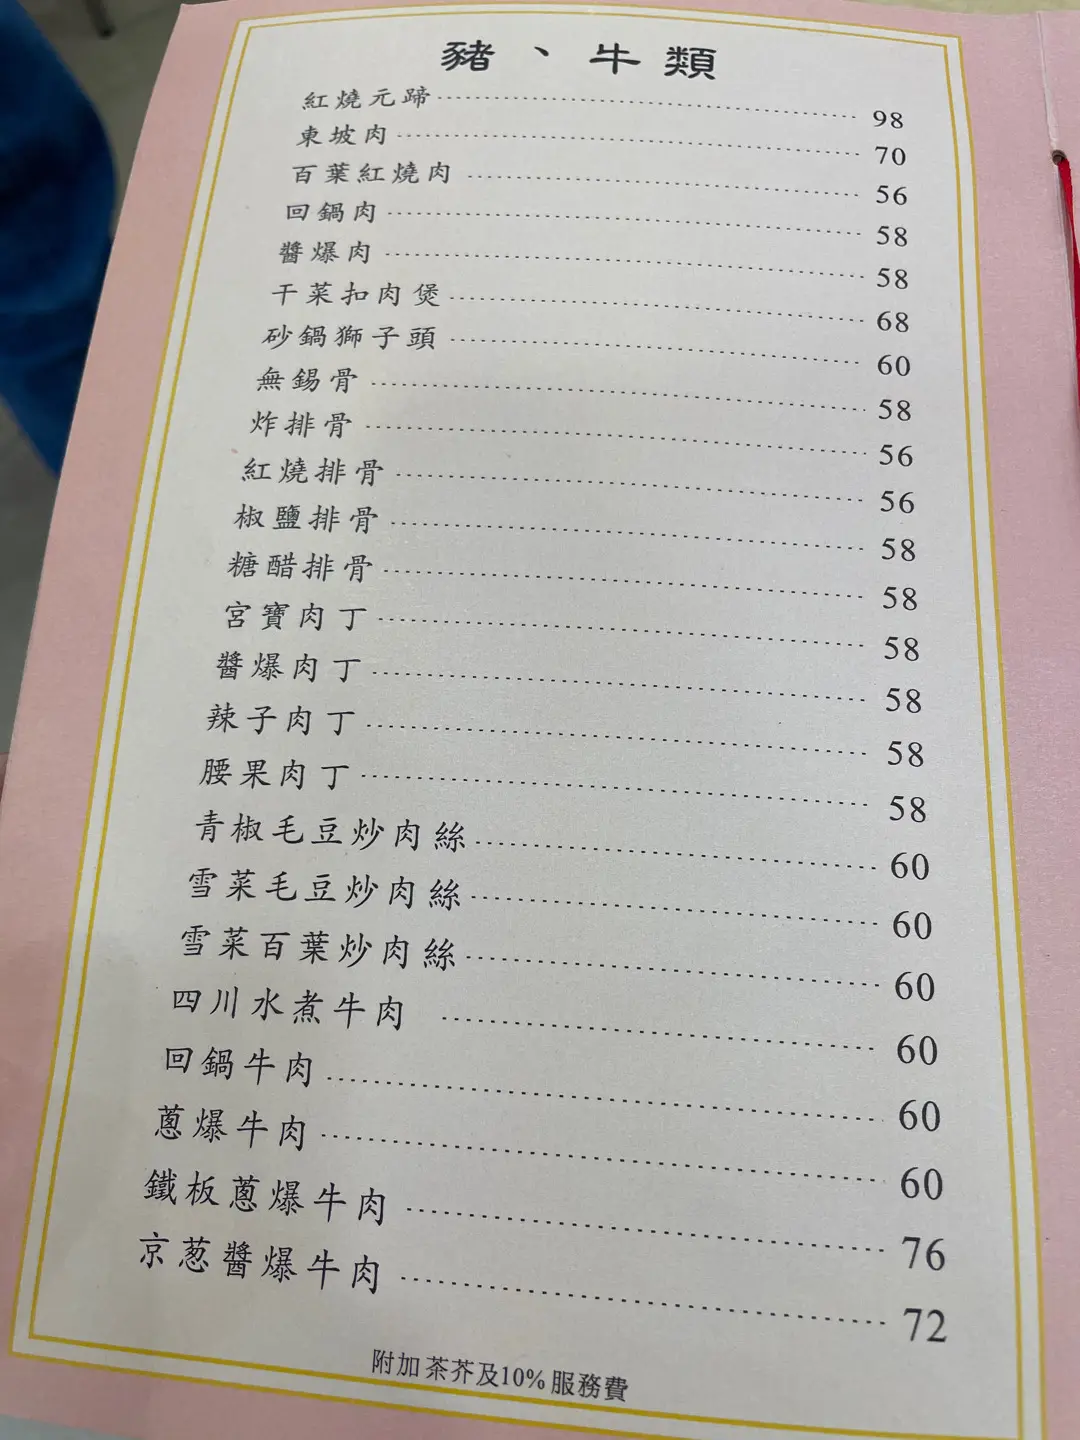 豬、牛類
紅燒元蹄 98
東坡肉 70
百葉紅燒肉 56
回鍋肉 58
醬爆肉 58
干菜扣肉煲 68
砂鍋獅子頭 60
無錫骨 58
炸排骨 56
紅燒排骨 56
椒鹽排骨 58
糖醋排骨 58
宮寶肉丁 58
醬爆肉丁 58
辣子肉丁 58
腰果肉丁 58
青椒毛豆炒肉絲 60
雪菜毛豆炒肉絲 60
雪菜百葉炒肉絲 60
四川水煮牛肉 60
回鍋牛肉 60
蔥爆牛肉 60
鐵板蔥爆牛肉 76
京葱醬爆牛肉 72
附加茶芥及10%服務費